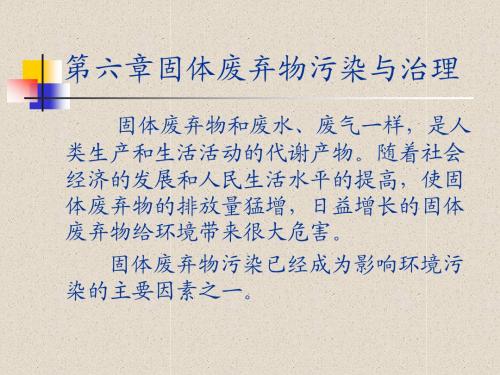 第六章固体废弃物污染与治理
固体废弃物和废水、废气一样，是人
类生产和生活活动的代谢产物。随着社会
经济的发展和人民生活水平的提高，使固
体废弃物的排放量猛增，日益增长的固体
废弃物给环境带来很大危害。
固体废弃物污染已经成为影响环境污
染的主要因素之一。